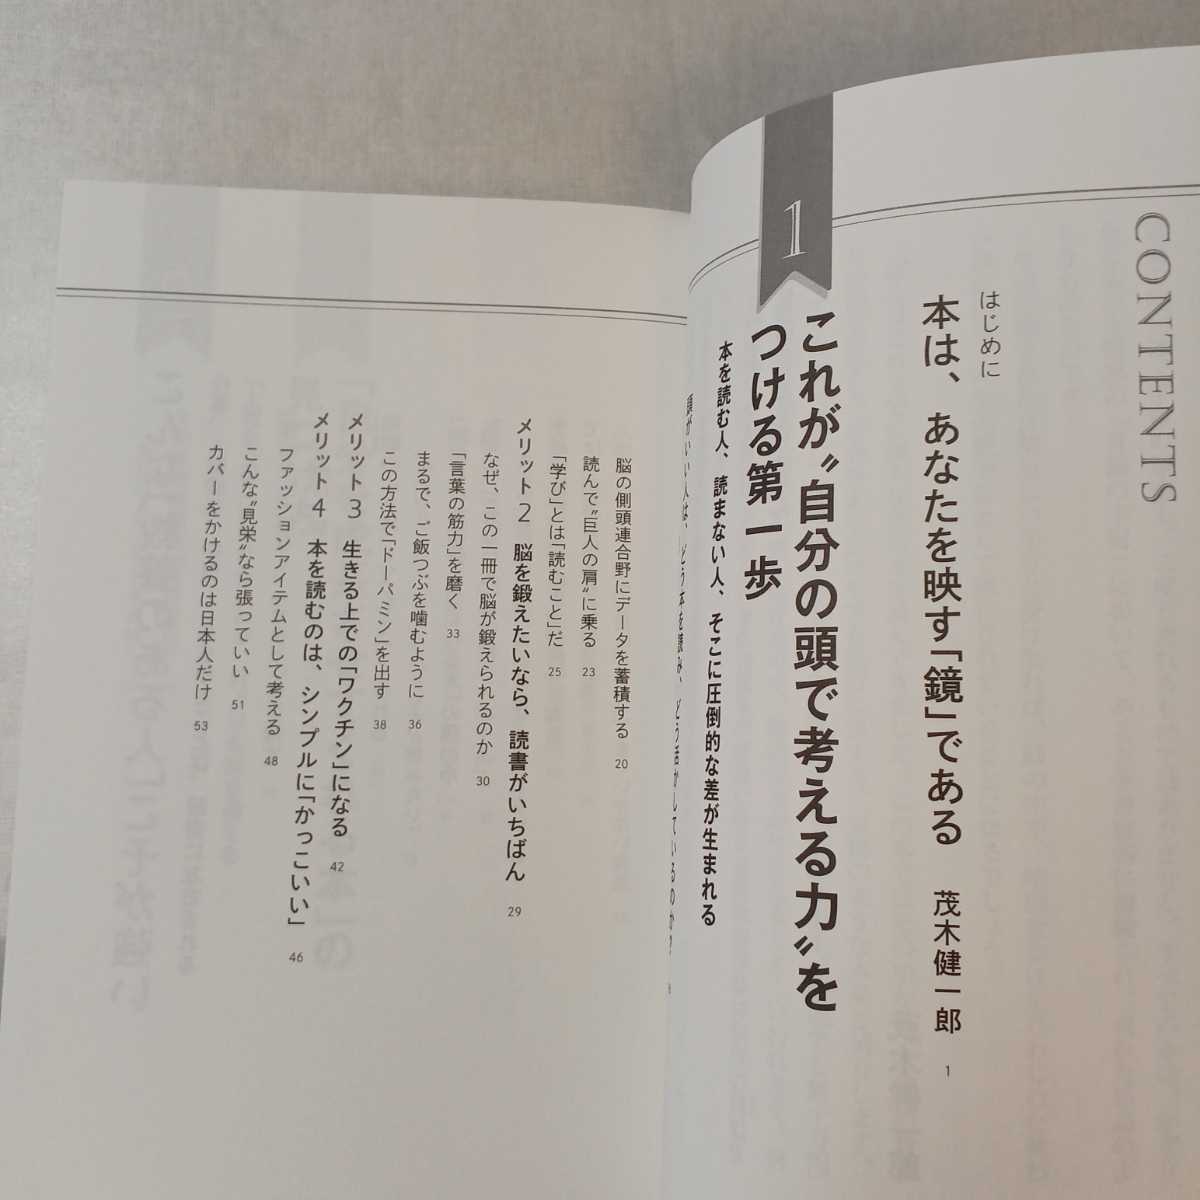 CONTENTS
はじめに
本は、あなたを映す「鏡」である　茂木健一郎　1
1
これが〝自分の頭で考える力〟を
つける第一歩
本を読む人、読まない人、そこに圧倒的な差が生まれる
頭がいい人は、どう本を読み、どう活かしているのか?
脳の側頭連合野にデータを蓄積する　20
読んで〝巨人の肩〟に乗る　23
「学び」とは「読むこと」だ　25
メリット2　脳を鍛えたいなら、読書がいちばん　29
なぜ、この一冊で脳が鍛えられるのか　30
「言葉の筋力」を磨く　33
まるで、ご飯つぶを噛むように　36
この方法で「ドーパミン」を出す　38
メリット3　生きる上での「ワクチン」になる　42
メリット4　本を読むのは、シンプルに「かっこいい」　46
ファッションアイテムとして考える　48
こんな〝見栄〟なら張っていい　51
カバーをかけるのは日本人だけ　53